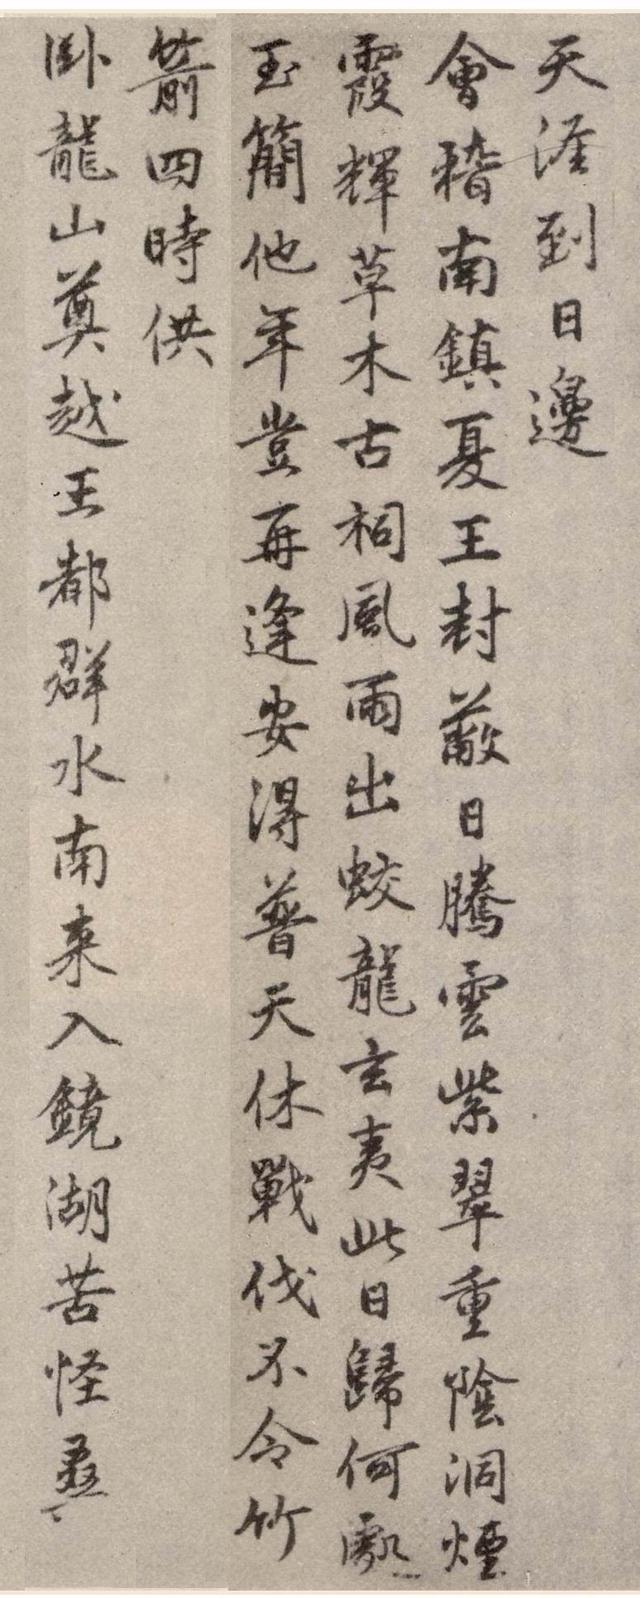 天涯到日邊
會稽南鎮夏王封蔽日騰雲紫翠重陰洞煙
霞輝草木古祠風雨出蛟龍玄夷此日歸何處
玉簡他年豈再逢安得普天休戰伐不令竹
箭四時供
卧龍山奠越王都群水南来入鏡湖苦怪